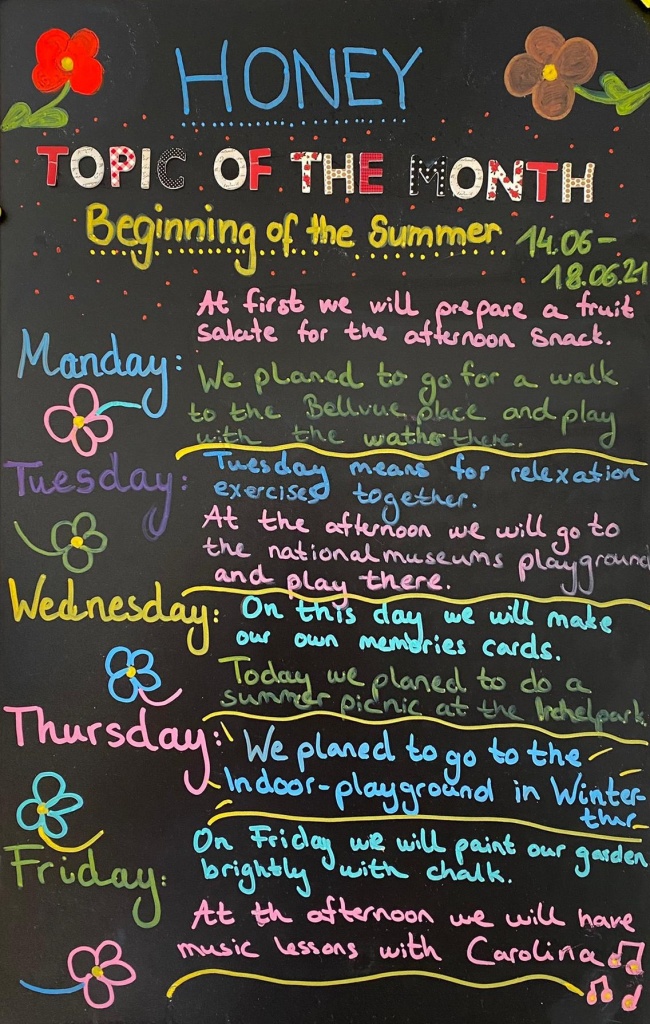 HONEY
TOPIC OF THE MONTH
Beginning of the Summer
14.06 -
18.06.21
At first we will prepare a fruit
salate for the afternoon snack.
Monday:
We planed to go for a walk
to the Bellvue place and play
with the wather there.
Tuesday:
Tuesday means for relexation
exercises together.
At the afternoon we will go to
the nationalmuseums playground
and play there.
Wednesday:
On this day we will make
our own memories cards.
Today we planed to do a
summer picnic at the Irchelpark
Thursday:
We planed to go to the
Indoor-playground in Winter-
thur
On Friday we will paint our garden
brightly with chalk.
Friday:
At th afternoon we will have
music lessons with Carolina